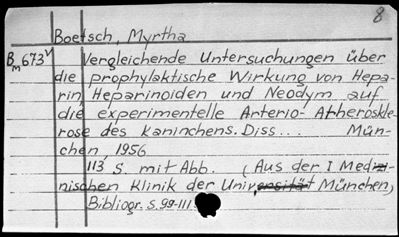 8
Boetsch, Myrtha
B M 673 V Vergleichende Untersuchungen über
die prophylaktische Wirkung von Hepa-
rin, Heparinoiden und Neodym auf
die experimentelle Arterio- Atheroskle-
rose des Kaninchens. Diss... Mün-
chen, 1956
113 S. mit Abb. (Aus der I Mediz-
nischen Klinik der Universität München,
Bibliogr. S. 99-111